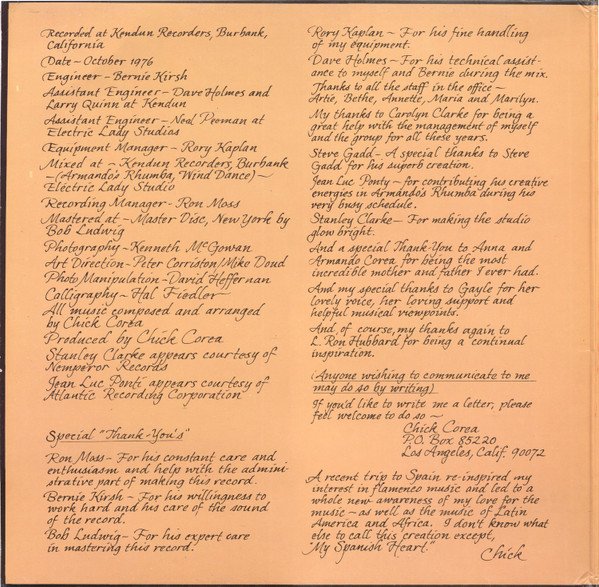 Recorded at Kendun Recorders, Burbank,
California
Date - October 1976
Engineer - Bernie Kirsh
Assistant Engineer - Dave Holmes and
Larry Quinn at Kendun
Assistant Engineer - Neal Preman at
Electric Lady Studios
Equipment Manager - Rory Kaplan
Mixed at - Kendun Recorders, Burbank
-(Armando's Rhumba, "Wind Dance)-
Electric Lady Studio
Recording Manager - Ron Moss
Mastered at - Master Disc, New York by
Bob Ludwig
Photography - Kenneth McGowan
Art Direction - Peter Corriston/Mike Doud
Photo Manipulation - David Heffernan
Calligraphy - Hal Fiedler
All music composed and arranged
by Chick Corea
Produced by Chick Corea
Stanley Clarke appears courtesy of
Nemperor Records
Jean Luc Ponti appears courtesy of
Atlantic Recording Corporation
Special "Thank-You's"
Ron Moss - For his constant care and
enthusiasm and help with the admini-
strative part of making this record.
Bernie Kirsh - For his willingness to
work hard and his care of the sound
of the record.
Bob Ludwig - For his expert care
in mastering this record.
Rory Kaplan - For his fine handling
of my equipment.
Dave Holmes - For his technical assist-
ance to myself and Bernie during the mix.
Thanks to all the staff in the office -
Artie, Bethe, Annette, Maria and Marilyn.
My thanks to Carolyn Clarke for being a
great help with the management of myself
and the group for all these years.
Steve Gadd - A special thanks to Steve
Gadd for his superb creation.
Jean Luc Ponty - for contributing his creative
energies in Armando's Rhumba during his
very busy schedule.
Stanley Clarke - For making the studio
glow bright.
And a special Thank-You to Anna and
Armando Corea for being the most
incredible mother and father I ever had.
And my special thanks to Gayle for her
lovely voice, her loving support and
helpful musical viewpoints.
And, of course, my thanks again to
L. Ron Hubbard for being a continual
inspiration.
(Anyone wishing to communicate to me
may do so by writing)
If you'd like to write me a letter, please
feel welcome to do so -
Chick Corea
P.O. Box 85220
Los Angeles, Calif. 90072
A recent trip to Spain re-inspired my
interest in flamenco music and led to a
whole new awareness of my love for the
music - as well as the music of Latin
America and Africa. I don't know what
else to call this creation except,
"My Spanish Heart."
Chick